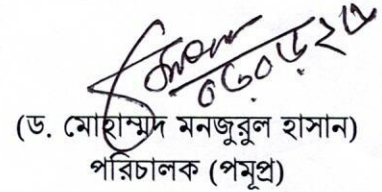 (ড. মোহাম্মদ মনজুরুল হাসান)
পরিচালক (পমূপ্র)